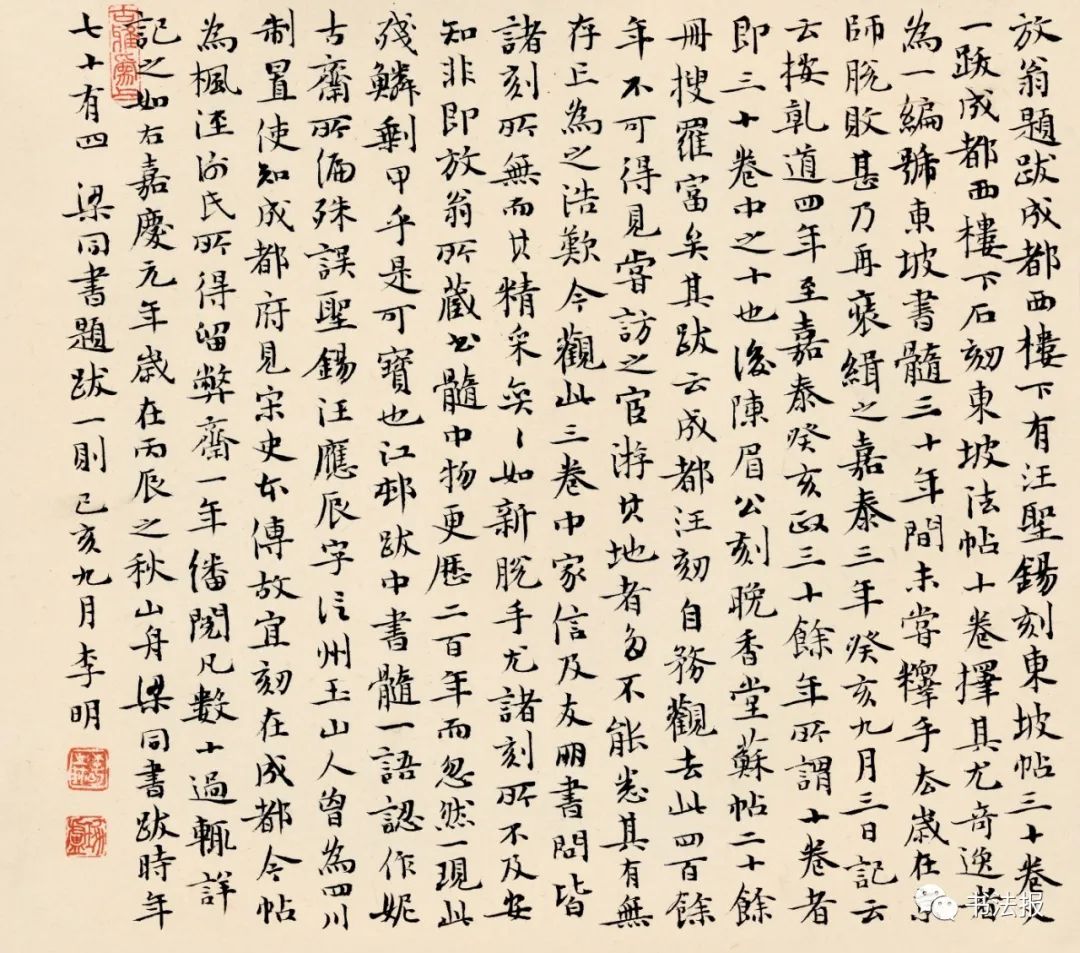 放翁題跋成都西樓下有汪聖錫刻東坡帖三十卷又
一跋成都西樓下石刻東坡法帖十卷擇其尤奇逸者
為一編號東坡書髓三十年間未嘗釋手去歲在京
師脫敗甚乃再裝緝之嘉泰三年癸亥九月三日記云
云按乾道四年至嘉泰癸亥政三十餘年所謂十卷者
即三十卷中之十也後陳眉公刻晚香堂蘇帖二十餘
冊搜羅富矣其跋云成都汪刻自務觀去此四百餘
年不可得見嘗訪之官游其地者多不能悉其有無
存亡為之浩歎今觀此三卷中家信及友朋書問皆
諸刻所無而其精采奕〻如新脫手尤諸刻所不及安
知非即放翁所藏書髓中物更歷二百年而忽然一現此
殘鱗剩甲乎是可寶也江邨跋中書髓一語認作妮
古齋所偏殊誤聖錫汪應辰字信州玉山人曾為四川
制置使知成都府見宋史本傳故宜刻在成都今帖
為楓涇謝氏所得留弊齋一年繙閱凡數十過輒詳
記之如右嘉慶元年歲在丙辰之秋山舟梁同書跋時年
七十有四 梁同書題跋一則己亥九月李明
书法报